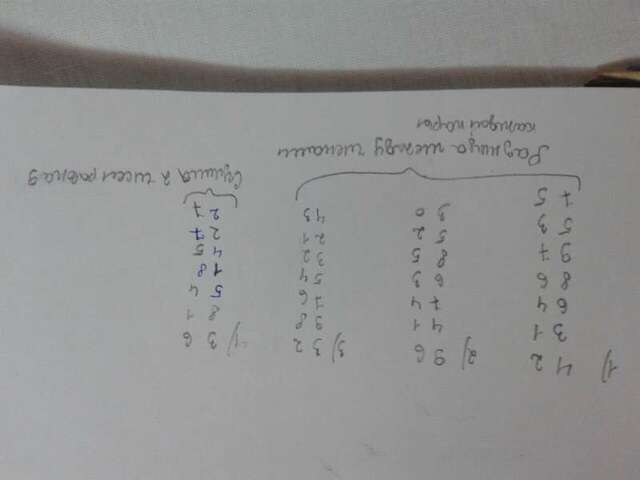 1) 4 2 2) 9 6 3) 3 2 4) 3 6
3 1 4 1 9 8 8 1
6 4 7 4 7 6 5 4
8 6 6 3 5 4 1 8
9 7 8 5 3 2 4 5
5 3 5 2 2 1 2 7
7 5 3 0 4 3 2 7
Разница между членами
каждой пары
Сумма 2 чисел равна 9